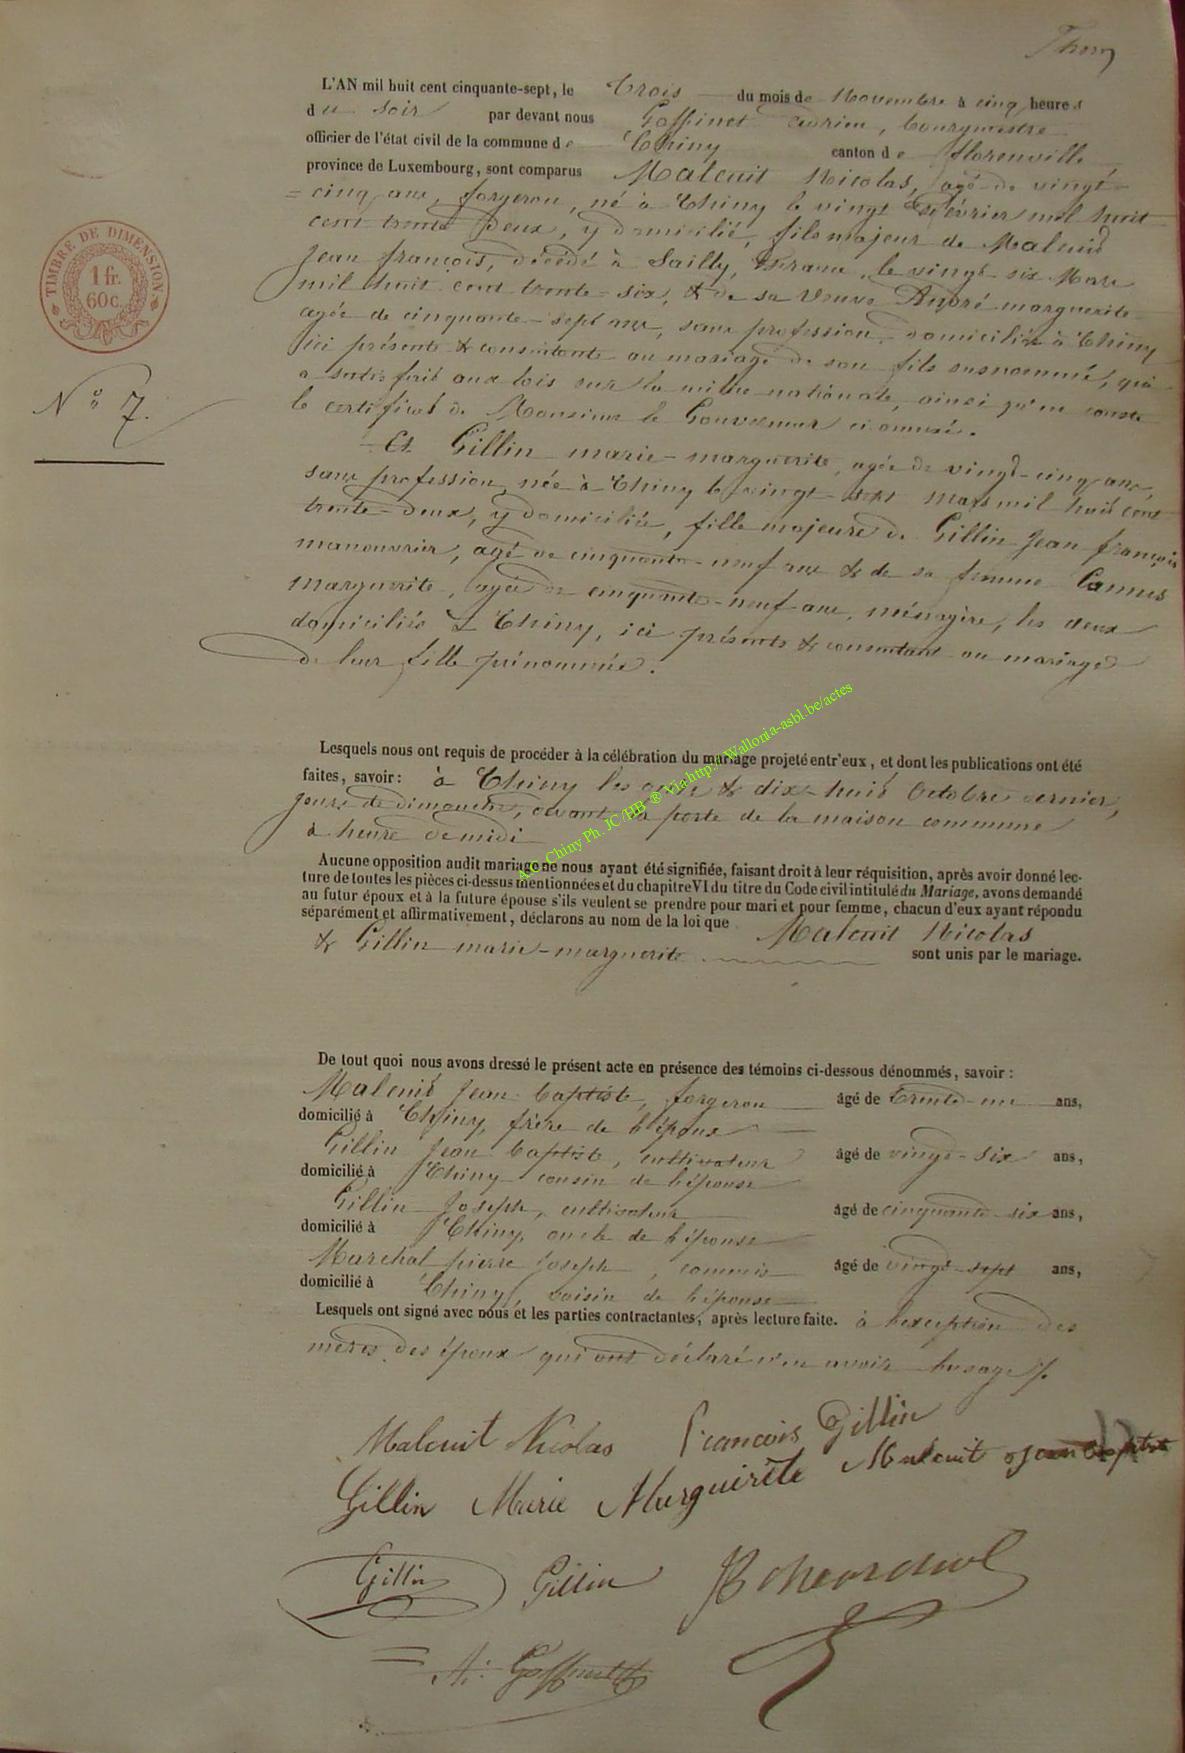 L'AN mil huit cent cinquante-sept, le Trois du mois de Novembre à cinq heures
du soir par devant nous Goffinet, bourgmestre
officier de l'état civil de la commune de Chiny canton de florenville
province de Luxembourg, sont comparus Maleuit Nicolas, agé de vingt-
cinq ans, forgeron, né à Chiny le vingt février mil huit
cent trente deux, y domicilié, fils majeur de Maleuit
Jean françois, décédé à Sailly, france, le vingt six Mars
mil huit cent trente-six, & de sa veuve André marguerite
agée de cinquante-sept ans, sans profession, domiciliée à Chiny
ici présente & consentante au mariage de son fils susnommé, qui
a satisfait aux lois sur la milice nationale, ainsi qu'en conste
le certificat de Monsieur le Gouverneur ci annexé.
N° 7.
TIMBRE DE DIMENSION
1 fr.
60 c.
Et Gillin marie-marguerite, agée de vingt-cinq ans,
sans profession, née à Chiny le vingt-sept mars mil huit cent
trente-deux, y domiciliée, fille majeure de Gillin Jean françois
manouvrier, agé de cinquante-neuf ans & de sa femme
marguerite, agée de cinquante-neuf ans, ménagère, les deux
domiciliés à Chiny, ici présents & consentant au mariage
de leur fille prénommée.
Lesquels nous ont requis de procéder à la célébration du mariage projeté entr'eux, et dont les publications ont été
faites, savoir: à Chiny les onze & dix-huit Octobre dernier,
jours de dimanche, devant la porte de la maison commune
à heure de midi
A.C. Chiny Ph. JC /HB ® Via http://Wallonia-asbl.be/actes
Aucune opposition audit mariage ne nous ayant été signifiée, faisant droit à leur réquisition, après avoir donné lec-
ture de toutes les pièces ci-dessus mentionnées et du chapitre VI du titre du Code civil intitulé du Mariage, avons demandé
au futur époux et à la future épouse s'ils veulent se prendre pour mari et pour femme, chacun d'eux ayant répondu
séparément et affirmativement, déclarons au nom de la loi que Maleuit Nicolas
& Gillin marie-marguerite sont unis par le mariage.
De tout quoi nous avons dressé le présent acte en présence des témoins ci-dessous dénommés, savoir:
Maleuit Jean baptiste, forgeron âgé de trente-un ans,
domicilié à Chiny, frère de l'époux
Gillin Jean baptiste, cultivateur âgé de vingt-six ans,
domicilié à Chiny cousin de l'épouse
Gillin Joseph, cultivateur âgé de cinquante-six ans,
domicilié à Chiny, oncle de l'épouse
Marchal pierre Joseph, commis âgé de vingt-sept ans,
domicilié à Chiny, voisin de l'épouse
Lesquels ont signé avec nous et les parties contractantes, après lecture faite. à l'exception des
mères des époux qui ont déclaré n'en avoir l'usage
Maleuit Nicolas François Gillin
Gillin Marie Marguirète Maleuit jean baptiste
Gillin Gillin
A. Goffinet